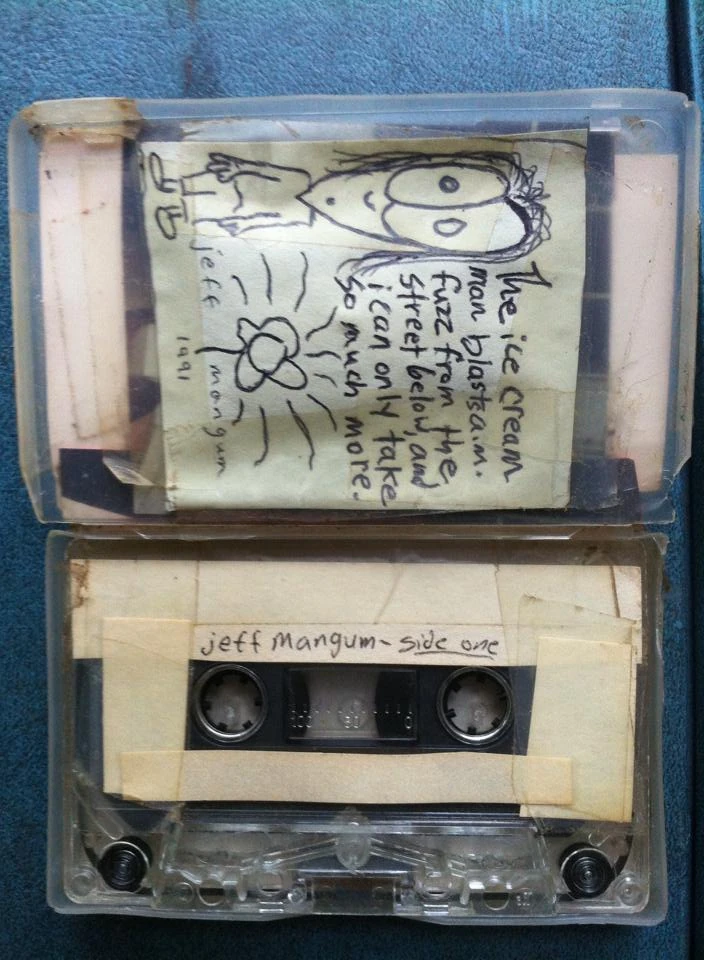 The ice cream
man blasts a.m.
fuzz from the
street below, and
i can only take
so much more.
jeff mangum
1991
jeff mangum - side one
100 50 0